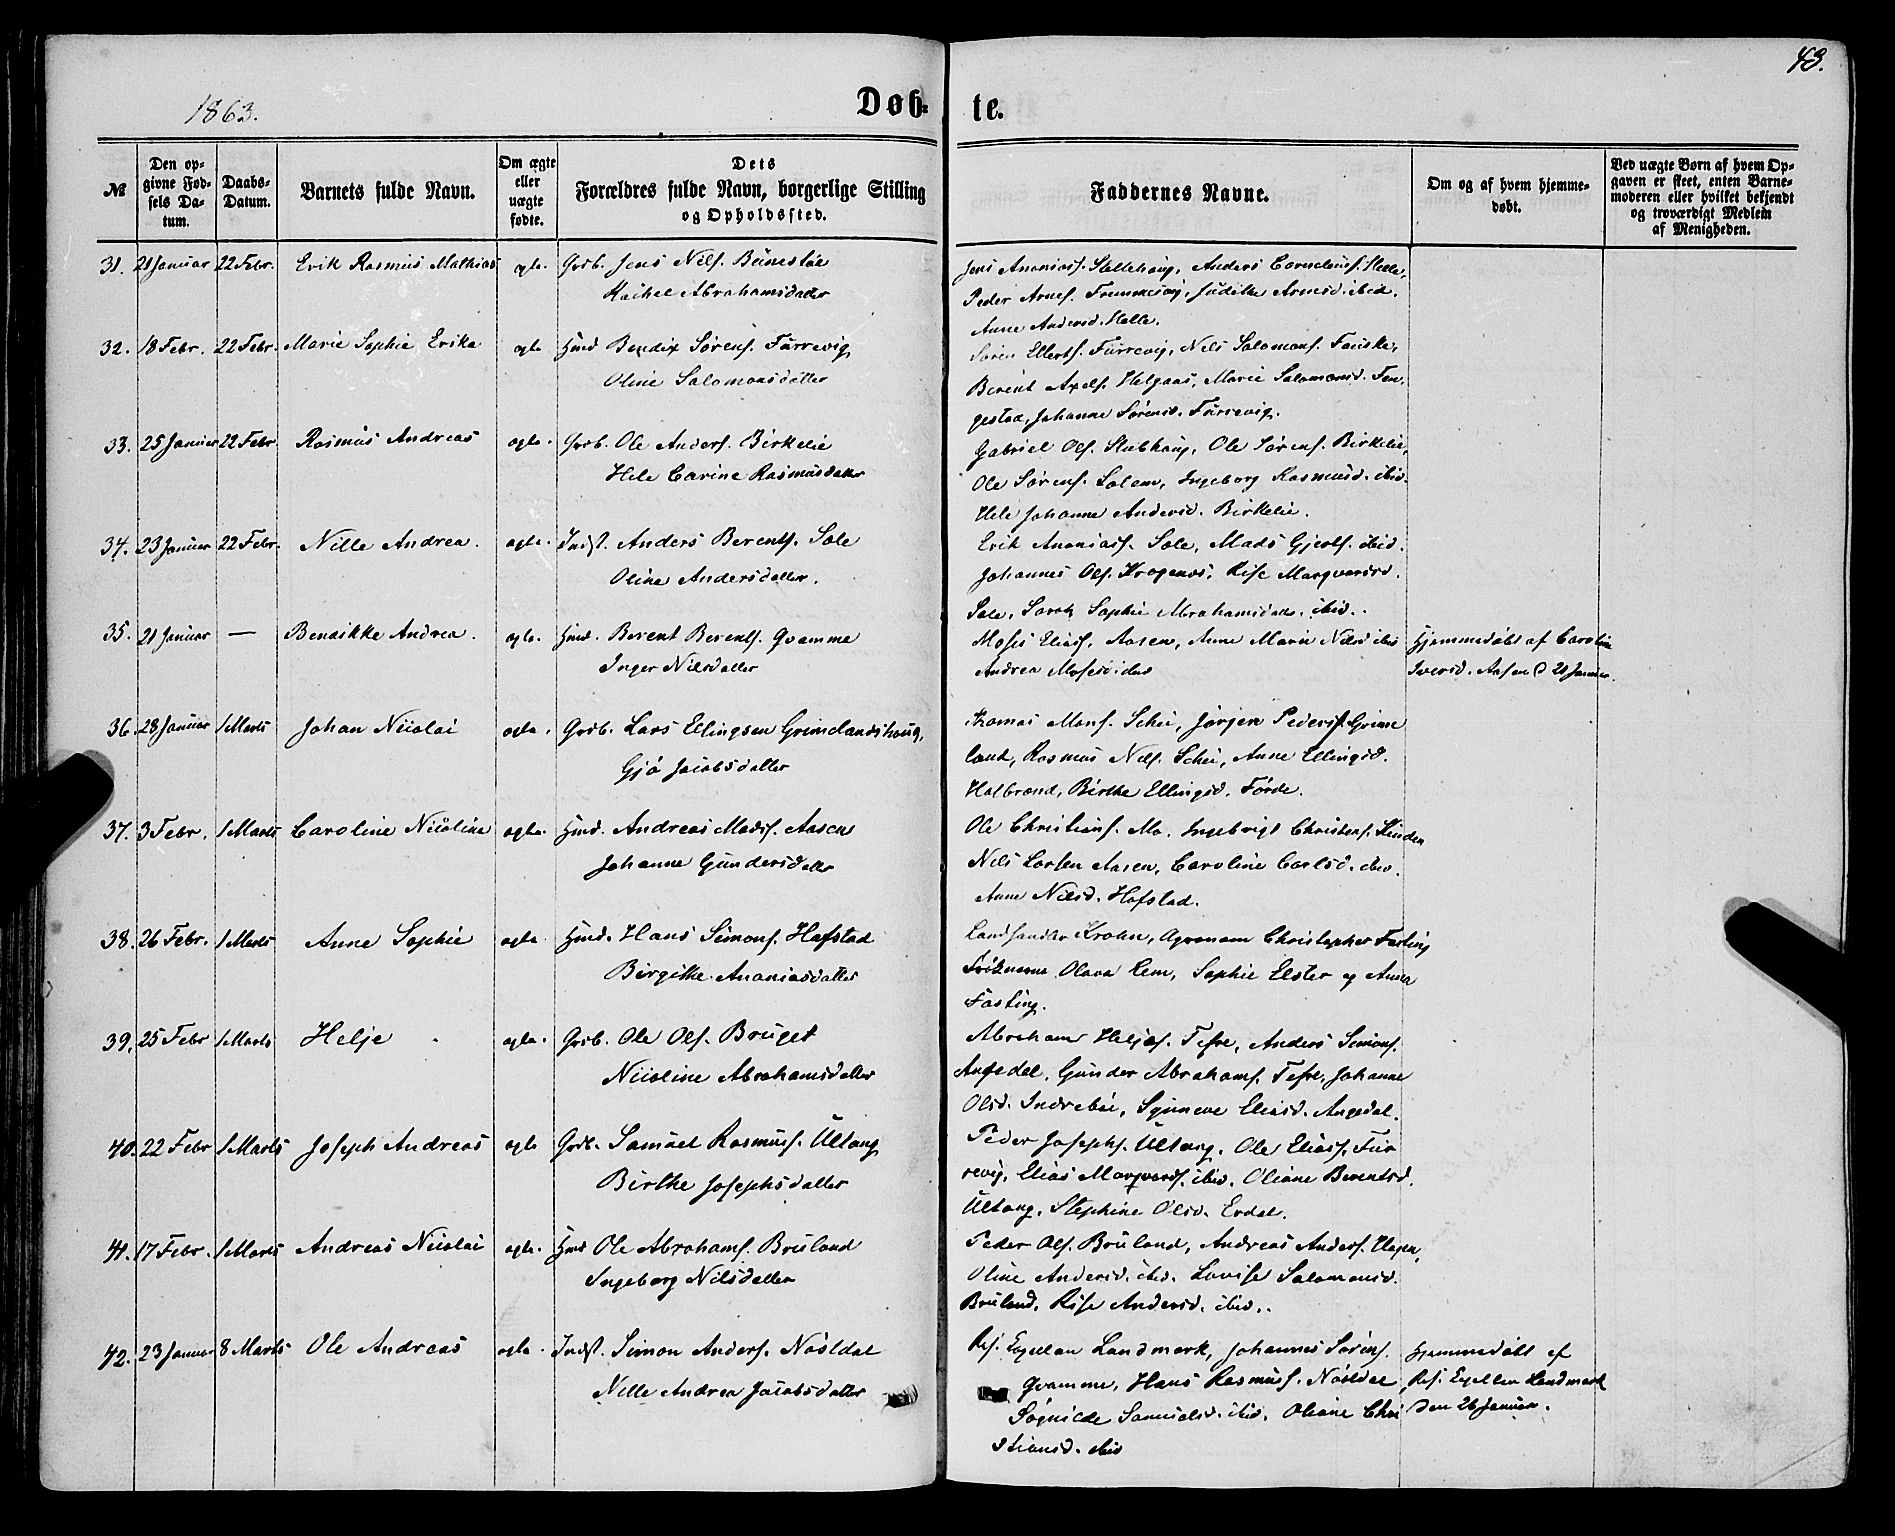 43.
1863.
Døb- te.
№
Den opgivne Fødsels Datum.
Daabs-Datum.
Barnets fulde Navn.
Om ægte eller uægte fødte.
Dets Forældres fulde Navn, borgerlige Stilling og Opholdssted.
Faddernes Navne.
Om og af hvem hjemmedøbt.
Ved uægte Børn af hvem Opgaven er skeet, enten Barnemoderen eller hvilket bekjendt og troværdigt Medlem af Menigheden.
31. 21 Januar 22 Febr. Erik Rasmus Mathias ægte. Grdb. Jens Nils. Bünestøe
Rachel Abrahamsdatter
Jens Ananias. Stellehaug, Anders Cornelius. Helle,
Peder Arnes. Judithe Arnesd. ibid.
Anne Andersd. Helle.
32. 18 Febr. 22 Febr. Marie Sophie Erika ægte Hmd Bendix Sørens. Fürrevig
Oline Salomonsdatter
Søren Ellerts. Fürrevig, Nils Salomons. Fauske,
Berent Axels. Helgaas, Marie Salomonsd. Fen-
gestad, Johanne Sørensd. Fürrevig.
33. 25 Januar 22 Febr. Rasmüs Andreas ægte. Grdb. Ole Anders. Birkelie
Hele Carine Rasmüsdatter
Gabriel Ols. Stubhaug, Ole Sørens. Birkelie,
Ole Sørens. Solem, Ingeborg Rasmusd. ibid.
Hele Johanne Andersd. Birkelie.
34. 23 Januar 22 Febr. Nille Andrea. ægte. Indst. Anders Berents. Sole
Oline Andersdatter.
Erik Ananias. Sole, Mads Gjerts. ibid.
Johannes Ols. Krogenæs, Rise Marqvardsd.
Sole, Sarah Sophie Abrahamsdatter. ibid.
35. 21 Januar — Bendikke Andrea. ægte. Hmd. Berent Berents. Qvamme
Inger Nilsdatter
Moses Elias. Aasen, Anne Marie Nilsd ibid
Andrea Mosesd. ibid
Hjemmedøbt af Caroline
Iversd. Aasen d 21 Januar.
36. 28 Januar 1 Marts Johan Nicolai ægte. Grdb. Lars Ellingsen Grimelandshoug,
Gjø Jacobsdatter
Thomas Mons. Schei, Jørgen Peders. Grime
land, Rasmus Nils. Schei, Anne Ellingsd.
Halbrend, Birthe Ellingsd. Førde.
37. 3 Febr. 1 Marts Caroline Nicoline ægte. Hmd. Andreas Mads. Aasen
Johanne Gündersdatter
Ole Christians. Mo, Ingebrigt Christens. Kinden
Nils Larsen Aasen, Caroline Carlsd. ibid.
Anne Nilsd. Hafstad.
38. 26 Febr. 1 Marts Anne Sophie ægte. Hmd. Hans Simons. Hafstad
Birgitte Ananiasdatter
Landhandler Krohn, Agronom Christopher Fasting
Frøknerne Olava Rem, Sophie Elster og Anna
Fasting.
39. 25 Febr 1 Marts Helje ægte. Grdb. Ole Ols. Bruget
Nicoline Abrahamsdatter
Abraham Heljes. Tefre, Anders Simons.
Angedal, Günder Abrahams. Tefre, Johanne
Olsd. Indrebøe, Synneve Eliasd. Angedal.
40. 22 Febr 1 Marts Joseph Andreas ægte Grdb. Samüel Rasmüs. Ültang
Birthe Josephsdatter
Peder Josephs. Ültang, Ole Elias. Für
revig, Elias Marqvards. ibid. Oliane Berentsd.
Ültang, Stephine Olsd. Erdal.
41. 17 Febr. 1 Marts Andreas Nicolai ægte. Hmd Ole Abrahams. Brüland
Ingeborg Nilsdatter
Peder Ols. Brüland, Andreas Anders. Hagen,
Oline Andersd. ibid. Lovise Salomonsd.
Brüland, Rise Andersd. ibid.
42. 23 Januar 8 Marts Ole Andreas ægte. Indst. Simon Anders. Nøsldal
Nille Andrea Jacobsdatter
Res. Capellan Landmark, Johannes Sørens.
Qvamme, Hans Rasmüs. Nøsldal
Søgnilde Samuelsd. ibid. Oliane Chri
stiansd. ibid
Hjemmedøbt af
Res. Capellan Landmark
den 26 Januar.